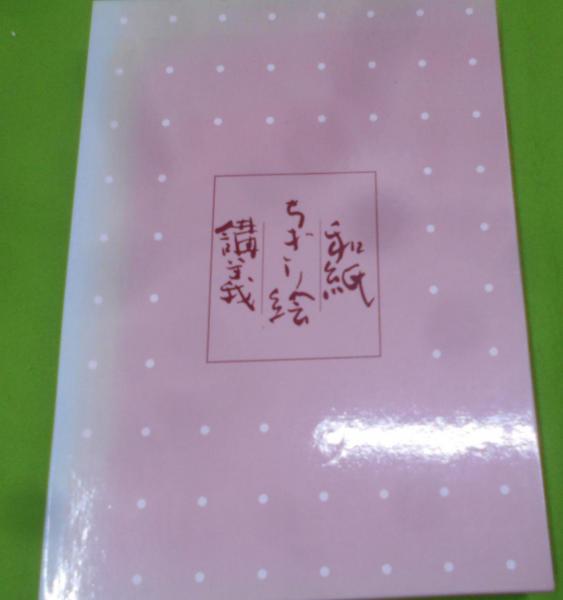 和紙
ちぎり絵
講義